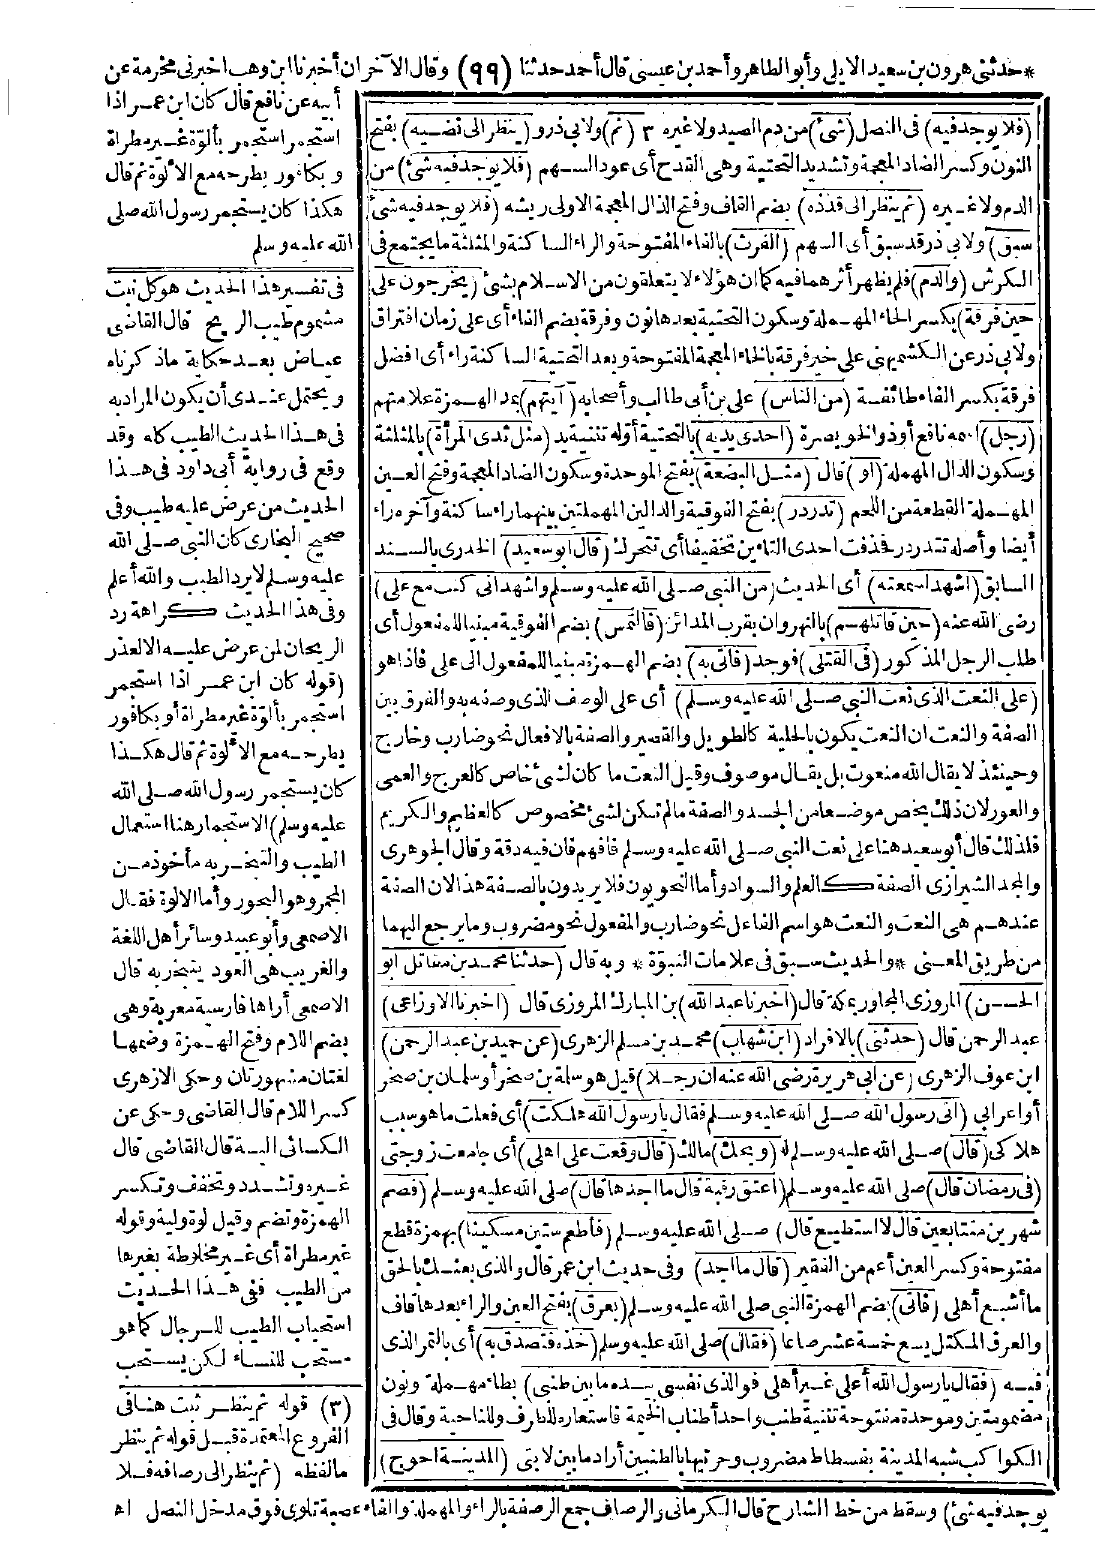 * حدثنى هرون بن سعيد الايلى وأبو الطاهر وأحمد بن عيسى قال أحمد حدثنا (٩٩) وقال الآخران أخبرنا ابن وهب اخبرنى مخرمة عن
أبيه عن نافع قال كان ابن عمر اذا
استجمر استجمر بألوة غير مطراة
و بكافور يطرحه مع الالوة ثم قال
هكذا كان يستجمر رسول الله صلى
الله عليه وسلم
فى تفسير هذا الحديث هو كل نبت
مشموم طيب الريح قال القاضى
عياض بعد حكاية ماذكرناه
ويحتمل عندى أن يكون المراد به
فى هذا الحديث الطيب كله وقد
وقع فى رواية أبى داود فى هذا
الحديث من عرض عليه طيب وفى
صحيح البخارى كان النبى صلى الله
عليه وسلم لا يرد الطيب والله أعلم
وفى هذا الحديث كراهة رد
الريحان لمن عرض عليه الا لعذر
(قوله كان ابن عمر اذا استجمر
استجمر بألوة غير مطراة أو بكافور
يطرحه مع الألوة ثم قال هكذا
كان يستجمر رسول الله صلى الله
عليه وسلم) الاستجمار هنا استعمال
الطيب والتبخر به مأخوذ من
المجمر وهو البخور وأما الالوة فقال
الاصمعى وأبو عبيد وسائر أهل اللغة
والغريب هى العود يتبخر به قال
الاصمعى أراها فارسية معربة وهى
بضم اللام وفتح الهمزة وضمها
لغتان مشهورتان وحكى الازهرى
كسر اللام قال القاضى وحكى عن
الكسائى الية قال القاضى قال
غيره وتشدد وتخفف وتكسر
الهمزة وتضم وقيل لوة ولية وقوله
غير مطراة أى غير مخلوطة بغيرها
من الطيب ففى هذا الحديث
استحباب الطيب للرجال كما هو
مستحب للنساء لكن يستحب
(فلا يوجد فيه) فى النصل (شئ) من دم الصيد ولا غيره ٣ (ثم) ولابى ذر و (ينظر الى نضيه) بفتح
النون وكسر الضاد المعجمة وتشديد التحتية وهى القدح أى عود السهم (فلا يوجد فيه شئ) من
الدم ولا غيره (ثم ينظر الى قذذه) بضم القاف وفتح الذال المعجمة الاولى ريشه (فلا يوجد فيه شئ
سبق) ولابى ذر قد سبق أى السهم (الفرث) بالفاء المفتوحة والراء الساكنة والمثلثة ما يجتمع فى
الكرش (والدم) فلم يظهر أثرهما فيه كما ان هؤلاء لا يتعلقون من الاسلام بشئ (يخرجون على
حين فرقة) بكسر الحاء المهملة وسكون التحتية بعدها نون وفرقة بضم الفاء أى على زمان افتراق
ولابى ذر عن الكشميهنى على خير فرقة بالخاء المعجمة المفتوحة وبعد التحتية الساكنة راء أى افضل
فرقة بكسر الفاء طائفة (من الناس) على بن أبى طالب وأصحابه (آيتهم) بمد الهمزة علامتهم
(رجل) اسمه نافع أو ذو الخويصرة (احدى يديه) بالتحتية أوله تثنية يد (مثل ثدى المرأة) بالمثلثة
وسكون الدال المهملة (او) قال (مثل البضعة) بفتح الموحدة وسكون الضاد المعجمة وفتح العين
المهملة القطعة من اللحم (تدردر) بفتح الفوقية والدالين المهملتين بينهما راء ساكنة وآخره راء
أيضا وأصله تتدردر فحذفت احدى التاءين تخفيفا أى تتحرك (قال ابو سعيد) الخدرى بالسند
السابق (اشهد لسمعته) أى الحديث (من النبى صلى الله عليه وسلم واشهد انى كنت مع على)
رضى الله عنه (حين قاتلهم) بالنهروان بقرب المدائن (فالتمس) بضم الفوقية مبنيا للمفعول أى
طلب الرجل المذكور (فى القتلى) فوجد (فأتى به) بضم الهمزة مبنيا للمفعول الى على فاذا هو
(على النعت الذى نعت النبى صلى الله عليه وسلم) أى على الوصف الذى وصفه به والفرق بين
الصفة والنعت ان النعت يكون بالحلية كالطويل والقصير والصفة بالافعال نحو ضارب وخارج
وحينئذ لا يقال الله منعوت بل يقال موصوف وقيل النعت ما كان لشئ خاص كالعرج والعمى
والعور لان ذلك يخص موضعا من الجسد والصفة مالم تكن لشئ مخصوص كالعظيم والكريم
فلذلك قال أبو سعيد هنا على نعت النبى صلى الله عليه وسلم فافهم فان فيه دقة وقال الجوهرى
والمجد الشيرازى الصفة كالعلم والسواد وأما النحويون فلا يريدون بالصفة هذا لان الصفة
عندهم هى النعت والنعت هو اسم الفاعل نحو ضارب والمفعول نحو مضروب وما يرجع اليهما
من طريق المعنى * والحديث سبق فى علامات النبوة * وبه قال (حدثنا محمد بن مقاتل ابو
الحسن) المروزى المجاور بمكة قال (اخبرنا عبد الله) بن المبارك المروزى قال (اخبرنا الاوزاعى)
عبد الرحمن قال (حدثنى) بالافراد (ابن شهاب) محمد بن مسلم الزهرى (عن حميد بن عبد الرحمن)
ابن عوف الزهرى (عن ابى هريرة رضى الله عنه ان رجلا) قيل هو سلمة بن صخر أو سلمان بن صخر
أو اعرابى (اتى رسول الله صلى الله عليه وسلم فقال يا رسول الله هلكت) أى فعلت ما هو سبب
هلاكى (قال) صلى الله عليه وسلم له (ويحك) مالك (قال وقعت على اهلى) أى جامعت زوجتى
(فى رمضان قال) صلى الله عليه وسلم (اعتق رقبة قال ما اجدها قال) صلى الله عليه وسلم (فصم
شهرين متتابعين قال لا استطيع قال) صلى الله عليه وسلم (فأطعم ستين مسكينا) بهمزة قطع
مفتوحة وكسر العين أعم من الفقير (قال ما اجد) وفى حديث ابن عمر قال والذى بعثك بالحق
ما أشبع أهلى (فأتى) بضم الهمزة النبى صلى الله عليه وسلم (بعرق) بفتح العين والراء بعدها قاف
والعرق المكتل يسع خمسة عشر صاعا (فقال) صلى الله عليه وسلم (خذه فتصدق به) أى بالتمر الذى
فيه (فقال يا رسول الله أعلى غير أهلى فوالذى نفسى بيده ما بين طنبى) بطاء مهملة ونون
مضمومتين وموحدة مفتوحة تثنية طنب واحد أطناب الخيمة فاستعاره للطرف وللناحية وقال فى
الكواكب شبه المدينة بفسطاط مضروب وحرتيها بالطنبين أراد ما بين لابتى (المدينة احوج)
(٣) قوله ثم ينظر ثبت هنا فى
الفروع المعتمدة قبل قوله ثم ينظر
ما لفظه (ثم ينظر الى رصافه فلا
يوجد فيه شئ) وسقط من خط الشارح قال الكرمانى والرصاف جمع الرصفة بالراء والمهملة والفاء عصبة تلوى فوق مدخل النصل اه